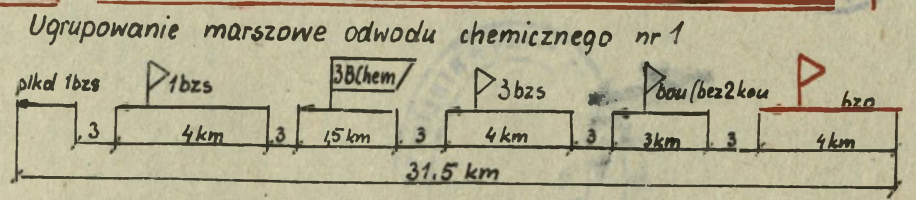 Ugrupowanie marszowe odwodu chemicznego nr 1
plkd 1bzs 1bzs 3BChem 3bzs bou(bez2kou bzo
3 4km 3 1,5km 3 4km 3 3km 3 4km
31.5 km